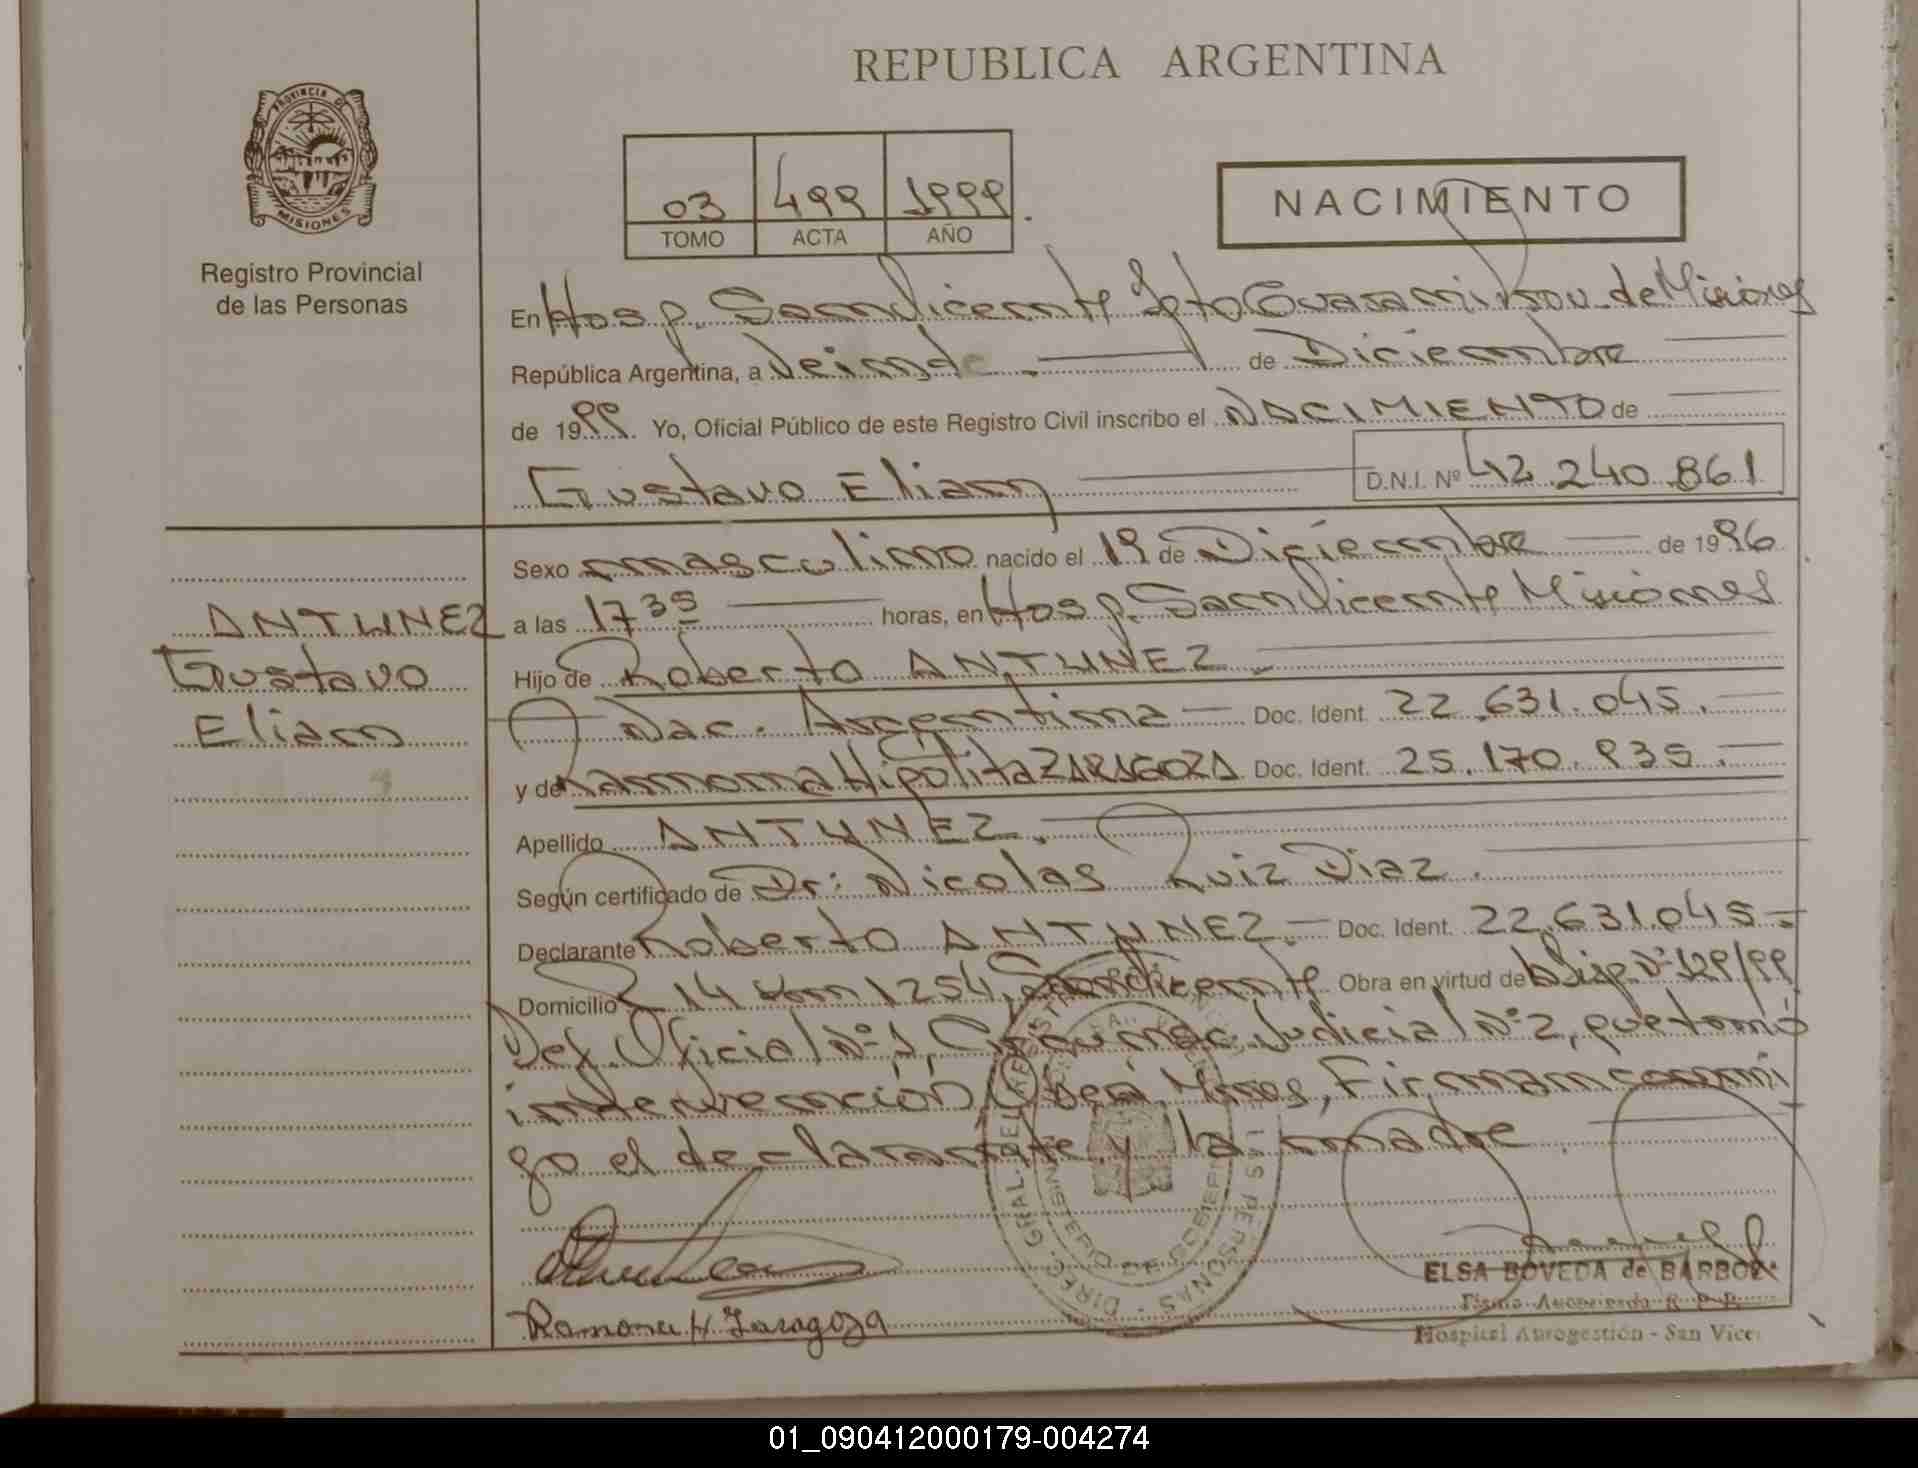 REPUBLICA ARGENTINA
PROVINCIA DE
MISIONES
Registro Provincial
de las Personas
03 499 1999.
TOMO ACTA AÑO
NACIMIENTO
En Hosp. San Vicente Dpto Guarani Prov. de Misiones
República Argentina, a Veinde. de Diciembre
de 1999. Yo, Oficial Público de este Registro Civil inscribo el NACIMIENTO de
Gustavo Eliam D.N.I. Nº 42.240.861
Sexo masculino nacido el 19 de Diciembre de 1996
ANTUNEZ
Gustavo
Eliam
a las 17 35 horas, en Hosp. San Vicente Misiones
Hijo de Roberto ANTUNEZ.
Nac. Argentina Doc. Ident. 22.631.045.
y de Ramona Hipolita ZARAGOZA Doc. Ident. 25.170.835.
Apellido ANTUNEZ.
Según certificado de Dr: Nicolas Ruiz Diaz.
Declarante Roberto ANTUNEZ. Doc. Ident. 22.631.045
Domicilio R 14 Km 1254, San Vicente Obra en virtud de Disp Nº 129/99
Def. Oficial Nº 1, Circunsc. Judicial Nº 2, que tomó
intervención Oberá, Mnes, Firman conmi
go el declarante y la madre.
Ramona H Zaragoza
ELSA BOVEDA de BARBOZA
Firma Autorizada R. P. P.
Hospital Autogestión - San Vice
01_090412000179-004274